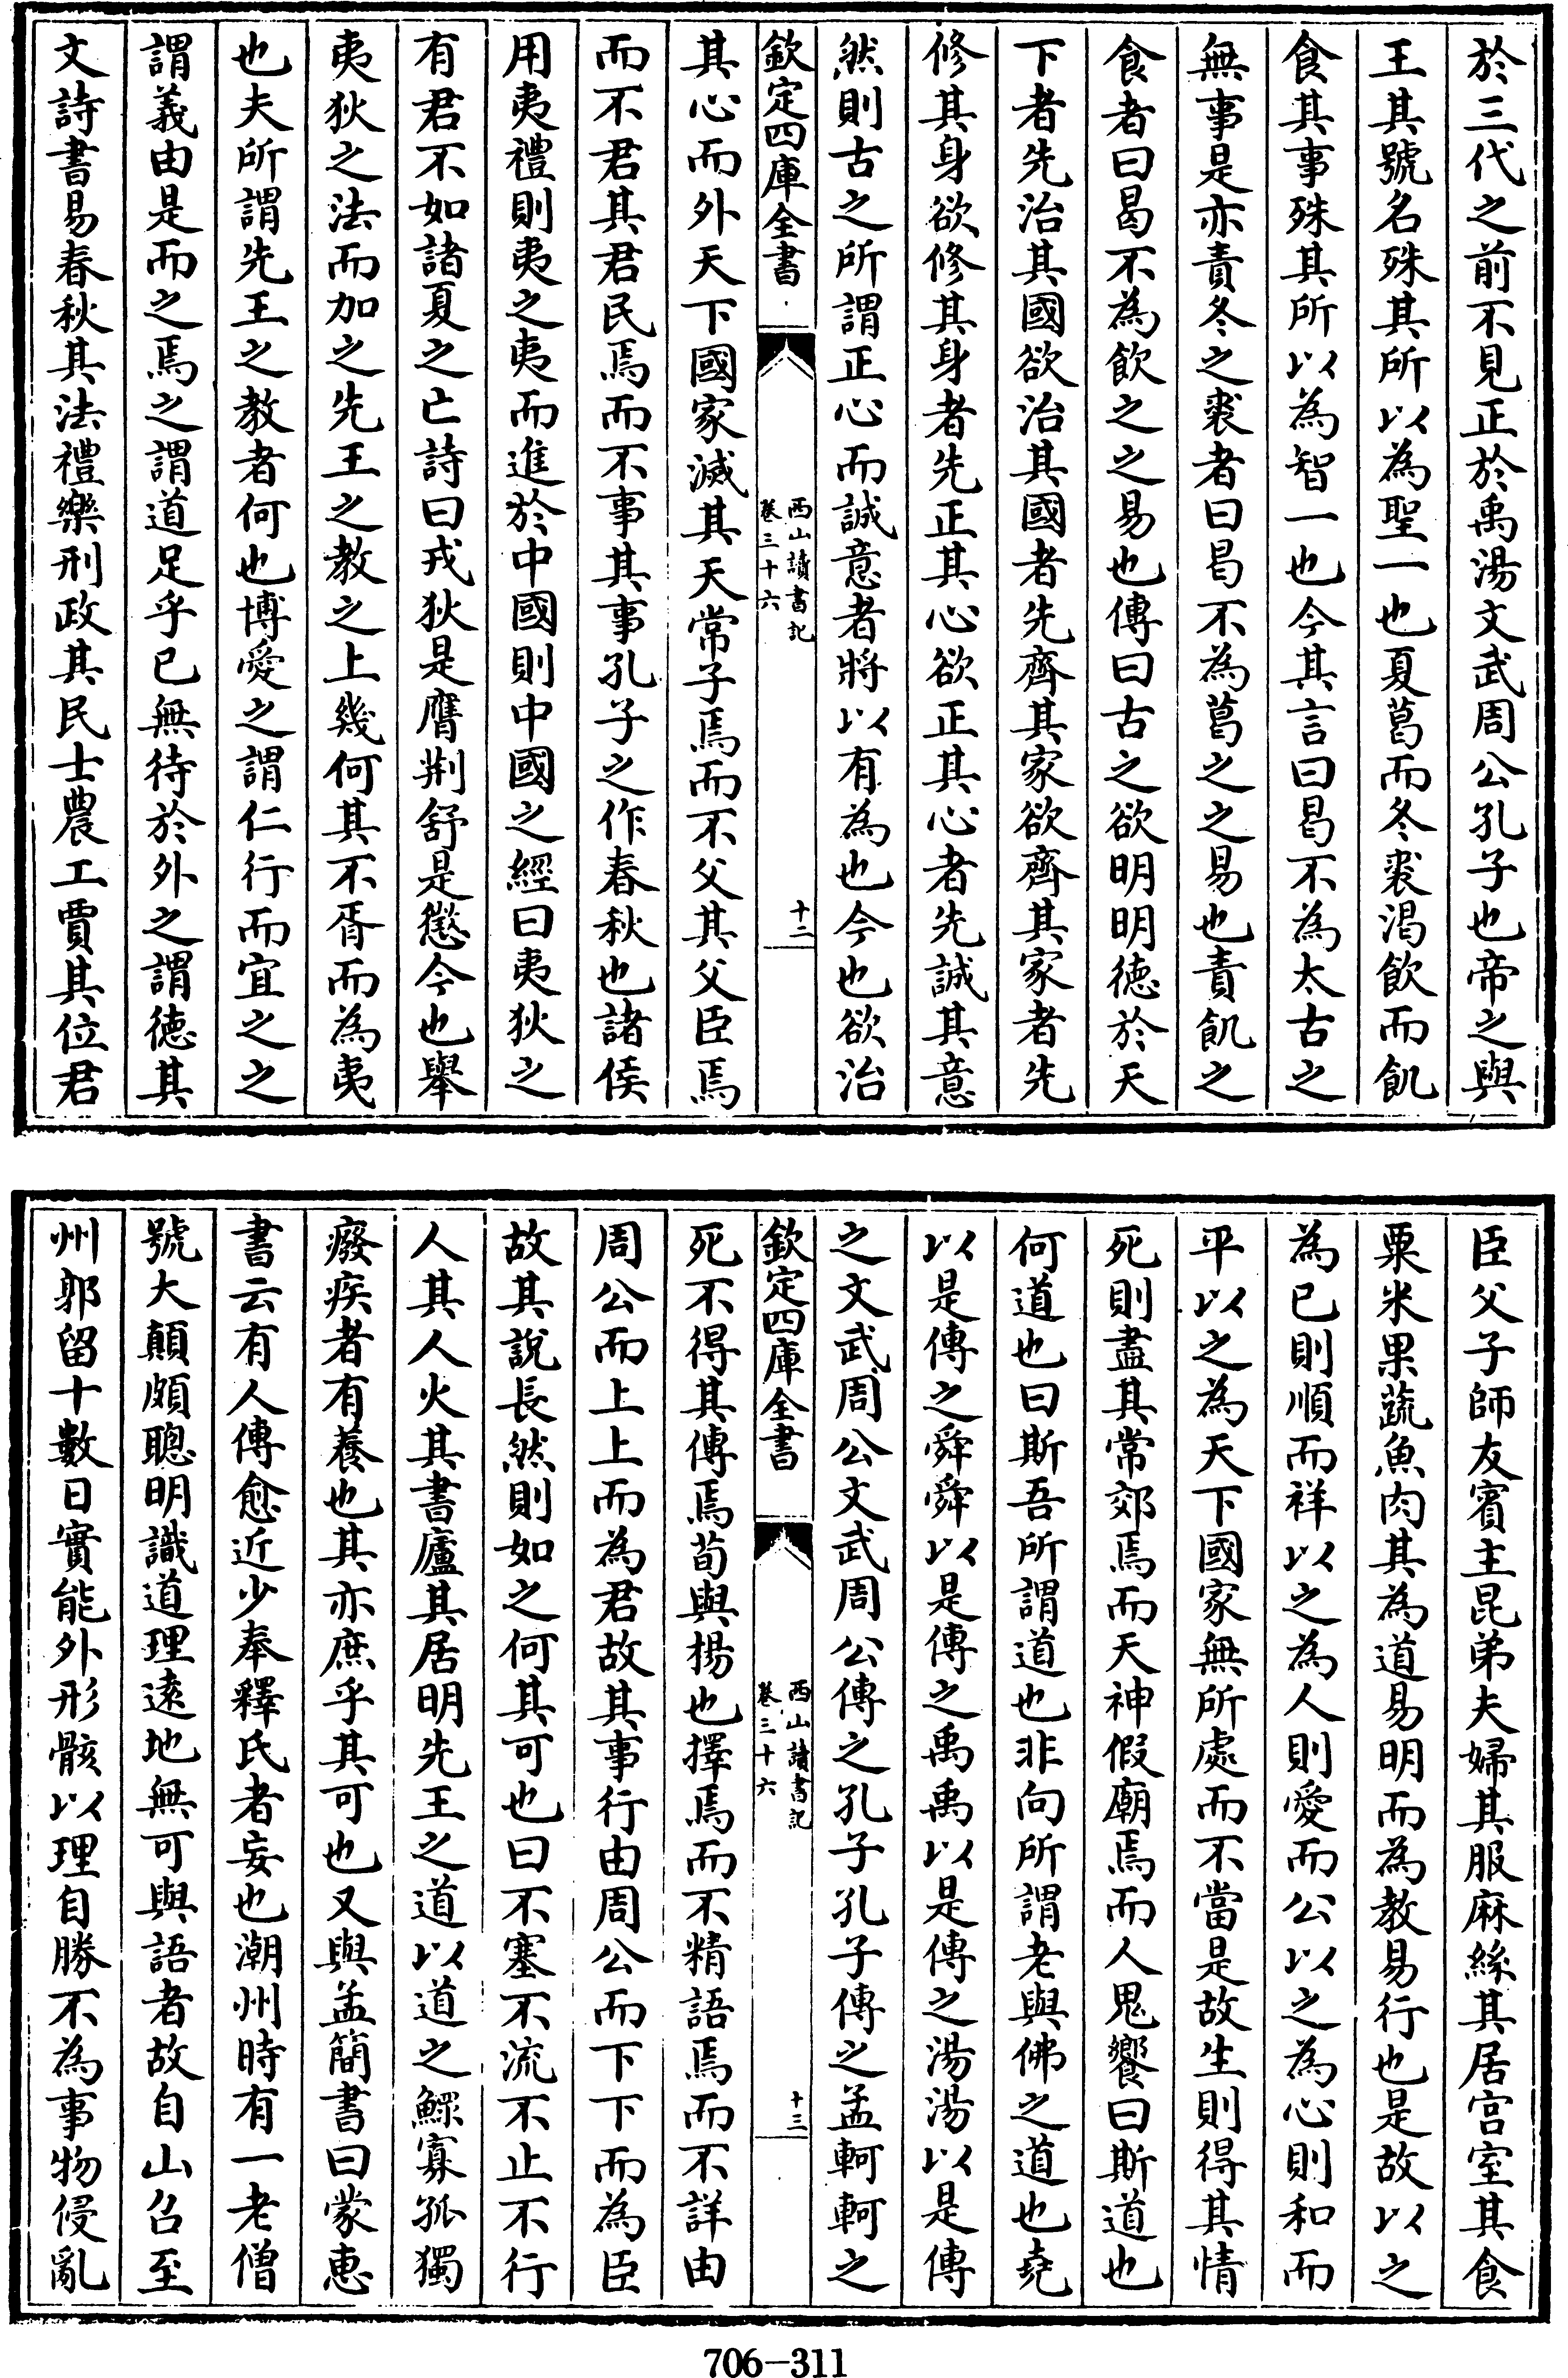 於三代之前不見正於禹湯文武周公孔子也帝之與
王其號名殊其所以為聖一也夏葛而冬裘渴飲而飢
食其事殊其所以為智一也今其言曰曷不為太古之
無事是亦責冬之裘者曰曷不為葛之之易也責飢之
食者曰曷不為飲之之易也傳曰古之欲明明徳於天
下者先治其國欲治其國者先齊其家欲齊其家者先
修其身欲修其身者先正其心欲正其心者先誠其意
然則古之所謂正心而誠意者將以有為也今也欲治
欽定四庫全書
西山讀書記
卷三十六
十二
其心而外天下國家滅其天常子焉而不父其父臣焉
而不君其君民焉而不事其事孔子之作春秋也諸侯
用夷禮則夷之夷而進於中國則中國之經曰夷狄之
有君不如諸夏之亡詩曰戎狄是膺荆舒是懲今也舉
夷狄之法而加之先王之教之上幾何其不胥而為夷
也夫所謂先王之教者何也博愛之謂仁行而宜之之
謂義由是而之焉之謂道足乎已無待於外之謂徳其
文詩書易春秋其法禮樂刑政其民士農工賈其位君
臣父子師友賓主昆弟夫婦其服麻絲其居宫室其食
粟米果蔬魚肉其為道易明而為教易行也是故以之
為已則順而祥以之為人則愛而公以之為心則和而
平以之為天下國家無所處而不當是故生則得其情
死則盡其常郊焉而天神假廟焉而人鬼饗曰斯道也
何道也曰斯吾所謂道也非向所謂老與佛之道也堯
以是傳之舜舜以是傳之禹禹以是傳之湯湯以是傳
之文武周公文武周公傳之孔子孔子傳之孟軻軻之
欽定四庫全書
西山讀書記
卷三十六
十三
死不得其傳焉荀與揚也擇焉而不精語焉而不詳由
周公而上上而為君故其事行由周公而下下而為臣
故其說長然則如之何其可也曰不塞不流不止不行
人其人火其書廬其居明先王之道以道之鰥寡孤獨
癈疾者有養也其亦庶乎其可也又與孟簡書曰蒙惠
書云有人傳愈近少奉釋氏者妄也潮州時有一老僧
號大顛頗聰明識道理逺地無可與語者故自山召至
州郭留十數日實能外形骸以理自勝不為事物侵亂
706-311